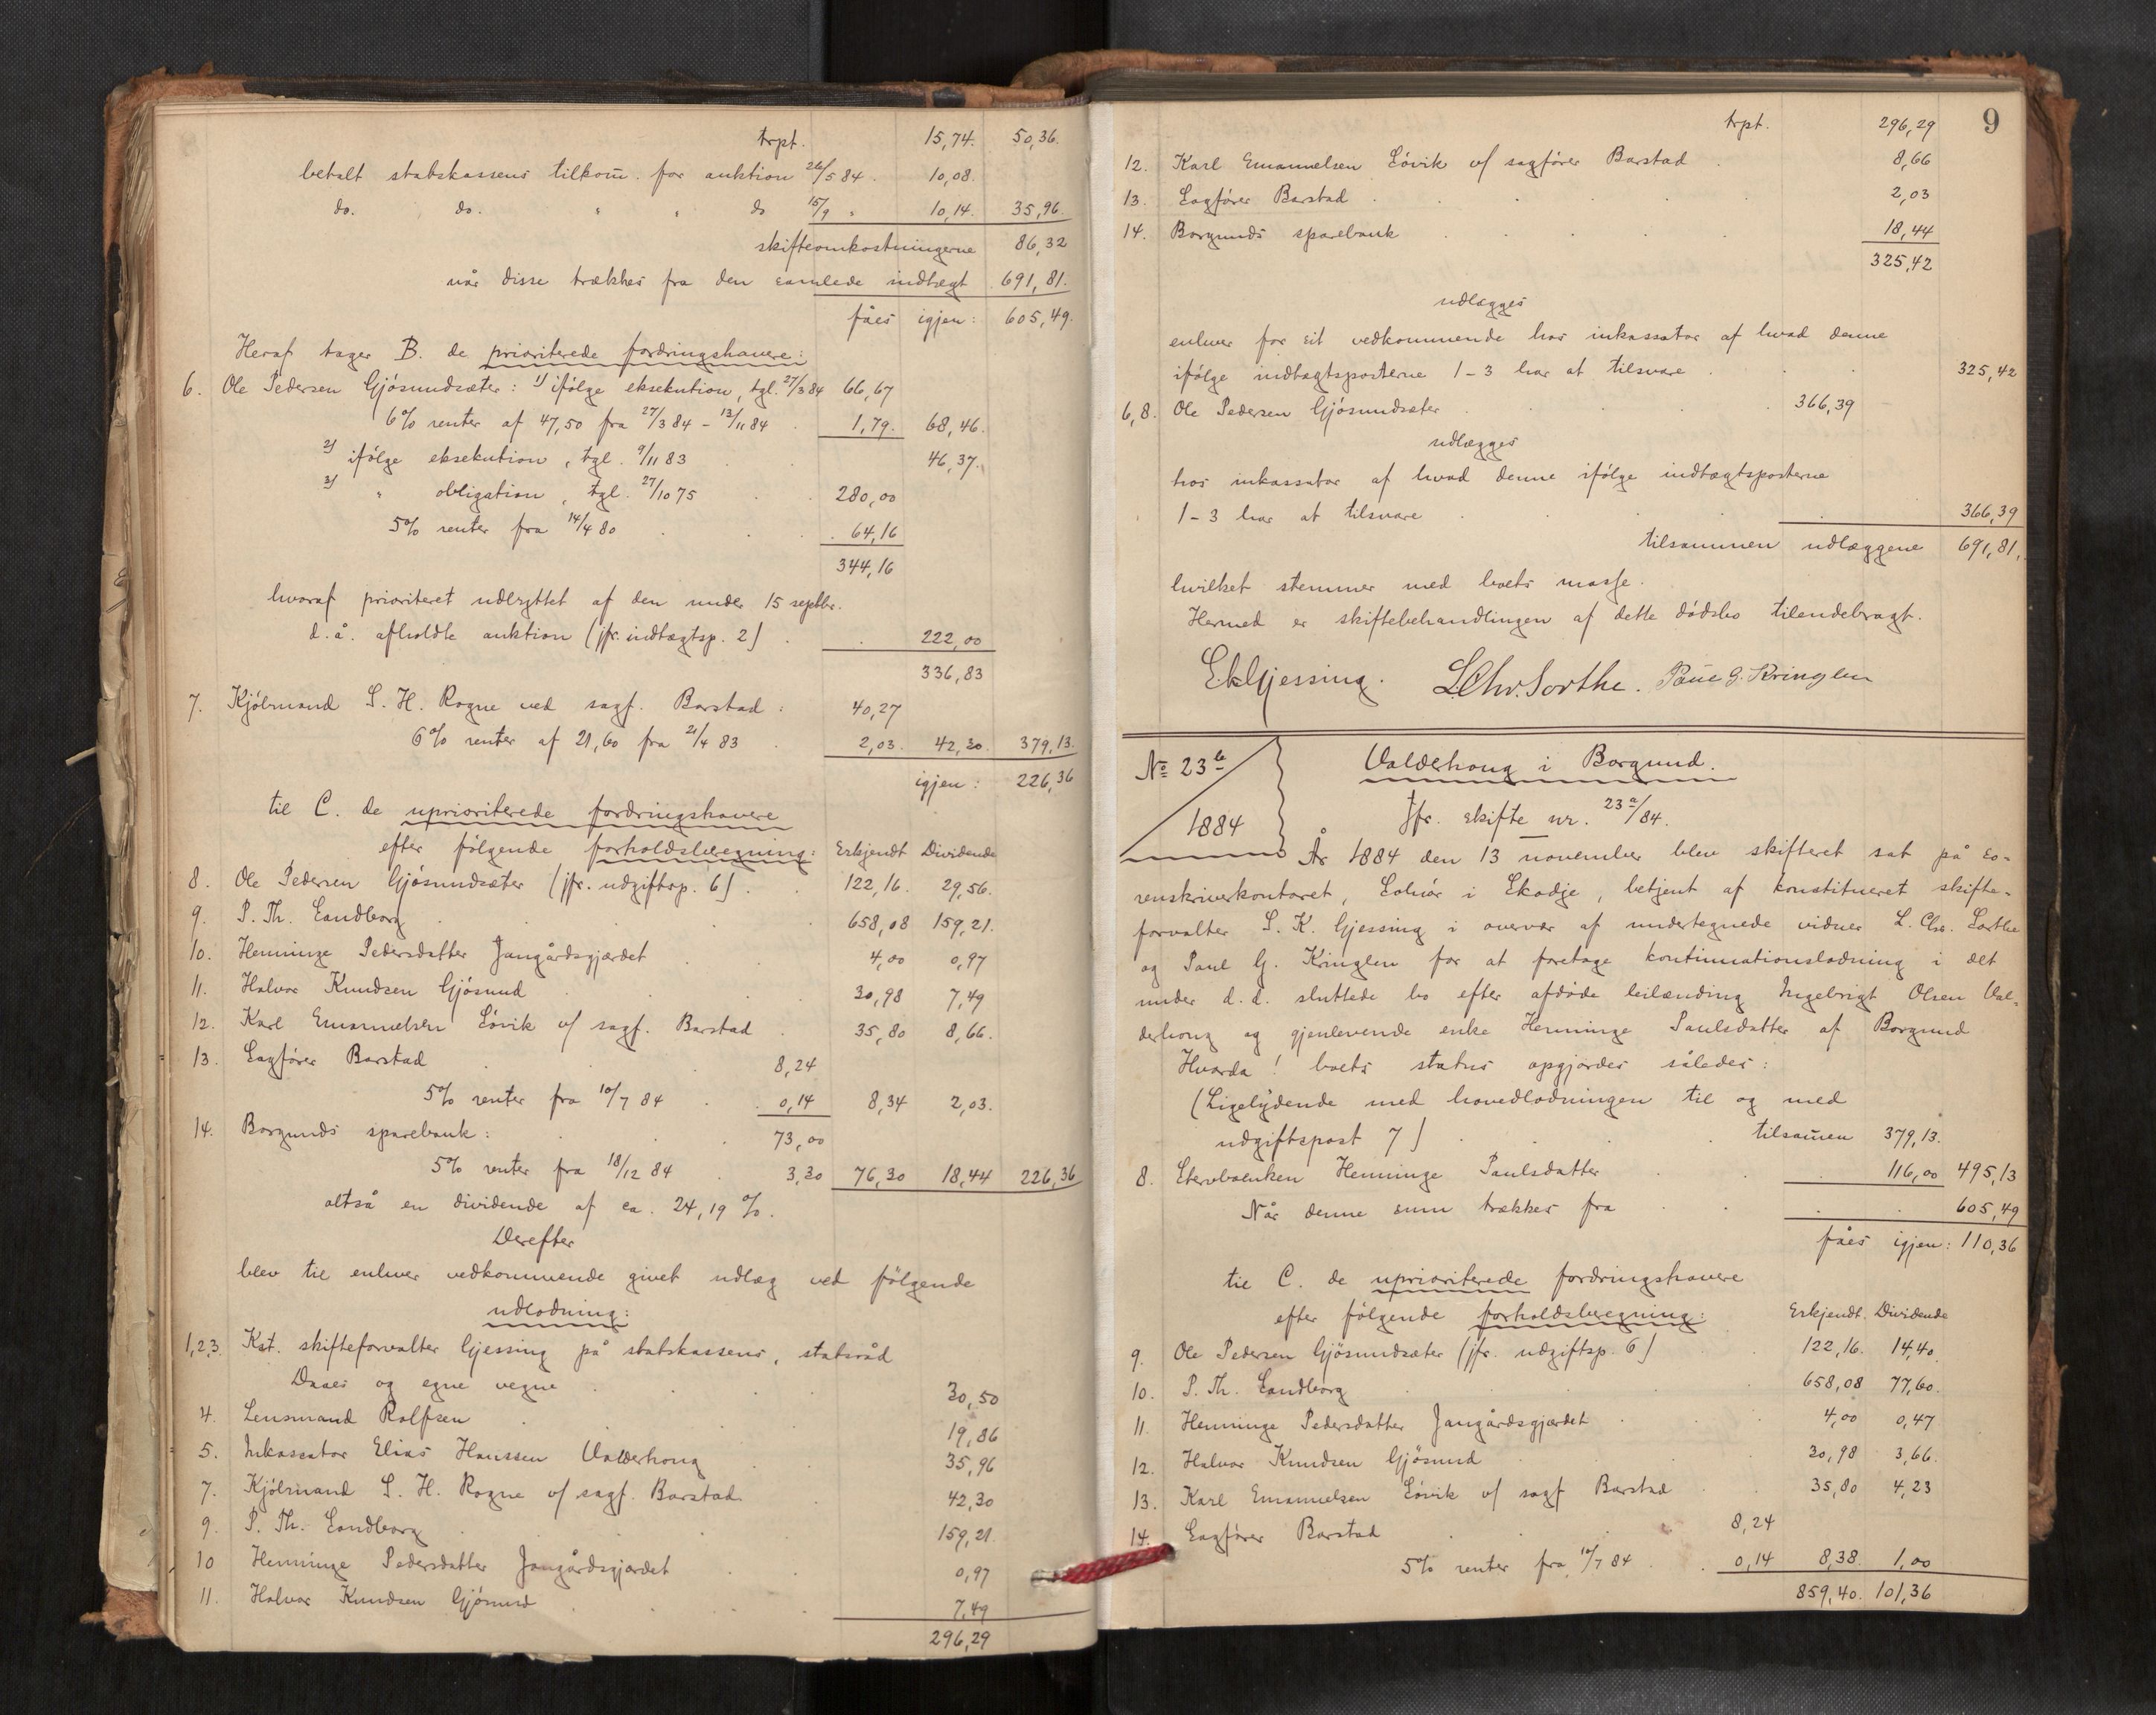 trpt. 15,74. 50,36.
betalt statskassens tilkom̄. for auktion 26/5 84. 10,08.
do. do. " " do 15/9 " 10,14. 35,96.
skifteomkostningerne 86,32
når disse trækkes fra den samlede indtægt 691,81.
fåes igjen: 605,49.
Heraf tager B. de prioriterede fordringshavere:
6. Ole Pedersen Gjøsundsæter: 1) ifølge eksekution, tgl. 27/3 84 66,67
6% renter af 47,50 fra 27/3 84 - 13/11 84 1,79. 68,46.
2) ifølge eksekution, tgl. 9/11 83 46,37.
3) " obligation, tgl. 27/10 75 280,00
5% renter fra 14/4 80 64,16
344,16
hvoraf prioriteret udbyttet af den under 15 septbr.
d. å. afholdte auktion (jfr. indtægtsp. 2) 222,00
336,83
7. Kjøbmand S. H. Rogne ved sagf. Barstad: 40,27
6% renter af 21,60 fra 21/4 83 2,03. 42,30. 379,13.
igjen: 226,36
til C. de uprioriterede fordringshavere
efter følgende forholdsberegning: Erkjendt Dividende
8. Ole Pedersen Gjøsundsæter (jfr. udgiftsp. 6). 122,16. 29,56.
9. P. Th. Sandborg 658,08 159,21.
10. Henninge Pedersdatter Jangårdsgjærdet 4,00 0,97
11. Halvor Knudsen Gjøsund 30,98 7,49
12. Karl Emanuelsen Løvik v/ sagf. Barstad 35,80 8,66.
13. Sagfører Barstad 8,24
5% renter fra 10/7 84 0,14 8,34 2,03.
14. Borgunds sparebank: 73,00
5% renter fra 18/12 84 3,30 76,30 18,44 226,36
altså en dividende af ca. 24,19 %.
Derefter
blev til enhver vedkommende givet udlæg ved følgende
udlodning:
1,2,3. Kst. skifteforvalter Gjessing på statskassens, statsråd
Daaes og egne vegne 30,50
4. Lensmand Rolfsen 19,86
5. Inkassator Elias Hanssen Valderhoug 35,96
7. Kjøbmand S. H. Rogne v/ sagf. Barstad 42,30
9. P. Th. Sandborg 159,21.
10 Henninge Pedersdatter Jangårdsgjærdet 0,97
11. Halvor Knudsen Gjøsund 7,49
296,29
9
trpt. 296,29
12. Karl Emanuelsen Løvik v/ sagfører Barstad 8,66
13. Sagfører Barstad 2,03
14. Borgunds sparebank 18,44
325,42
udlægges
enhver for sit vedkommende hos inkassator af hvad denne
ifølge indtægtsposterne 1-3 har at tilsvare 325,42
6,8. Ole Pedersen Gjøsundsæter 366,39
udlægges
hos inkassator af hvad denne ifølge indtægtsposterne
1-3 har at tilsvare 366,39
tilsammen udlæggene 691,81.
hvilket stemmer med boets masse.
Hermed er skiftebehandlingen af dette dødsbo tilendebragt.
SKGjessing. L.Chr.Sorthe. Paul G. Kringlen
No 23 b
1884
Valderhoug i Borgund.
Jfr. skifte nr. 23a/84.
År 1884 den 13 november blev skifteret sat på so-
renskriverkontoret, Solnør i Skodje, betjent af konstitueret skifte-
forvalter S. K. Gjessing i overvær af undertegnede vidner L. Chr. Sorthe
og Paul G. Kringlen for at foretage kontinuationslodning i det
under d. d. sluttede bo efter afdøde leilænding Ingebrigt Olsen Val-
derhoug og gjenlevende enke Henninge Paulsdatter af Borgund
Hvorda! boets status opgjordes således:
(Ligelydende med hovedlodningen til og med
udgiftspost 7) tilsam̄en 379,13.
8. Stervboenken Henninge Paulsdatter 116,00 495,13
Når denne sum trækkes fra 605,49
fåes igjen: 110,36
til C. de uprioriterede fordringshavere
efter følgende forholdsberegning: Erkjendt. Dividende
9. Ole Pedersen Gjøsundsæter (jfr. udgiftsp. 6) 122,16. 14,40.
10. P. Th. Sandborg 658,08 77,60.
11. Henninge Pedersdatter Jangårdsgjærdet 4,00 0,47
12. Halvor Knudsen Gjøsund 30,98 3,66.
13. Karl Emanuelsen Løvik v/ sagf Barstad 35,80 4,23
14. Sagfører Barstad 8,24
5% renter fra 10/7 84 0,14 8,38. 1,00
859,40. 101,36